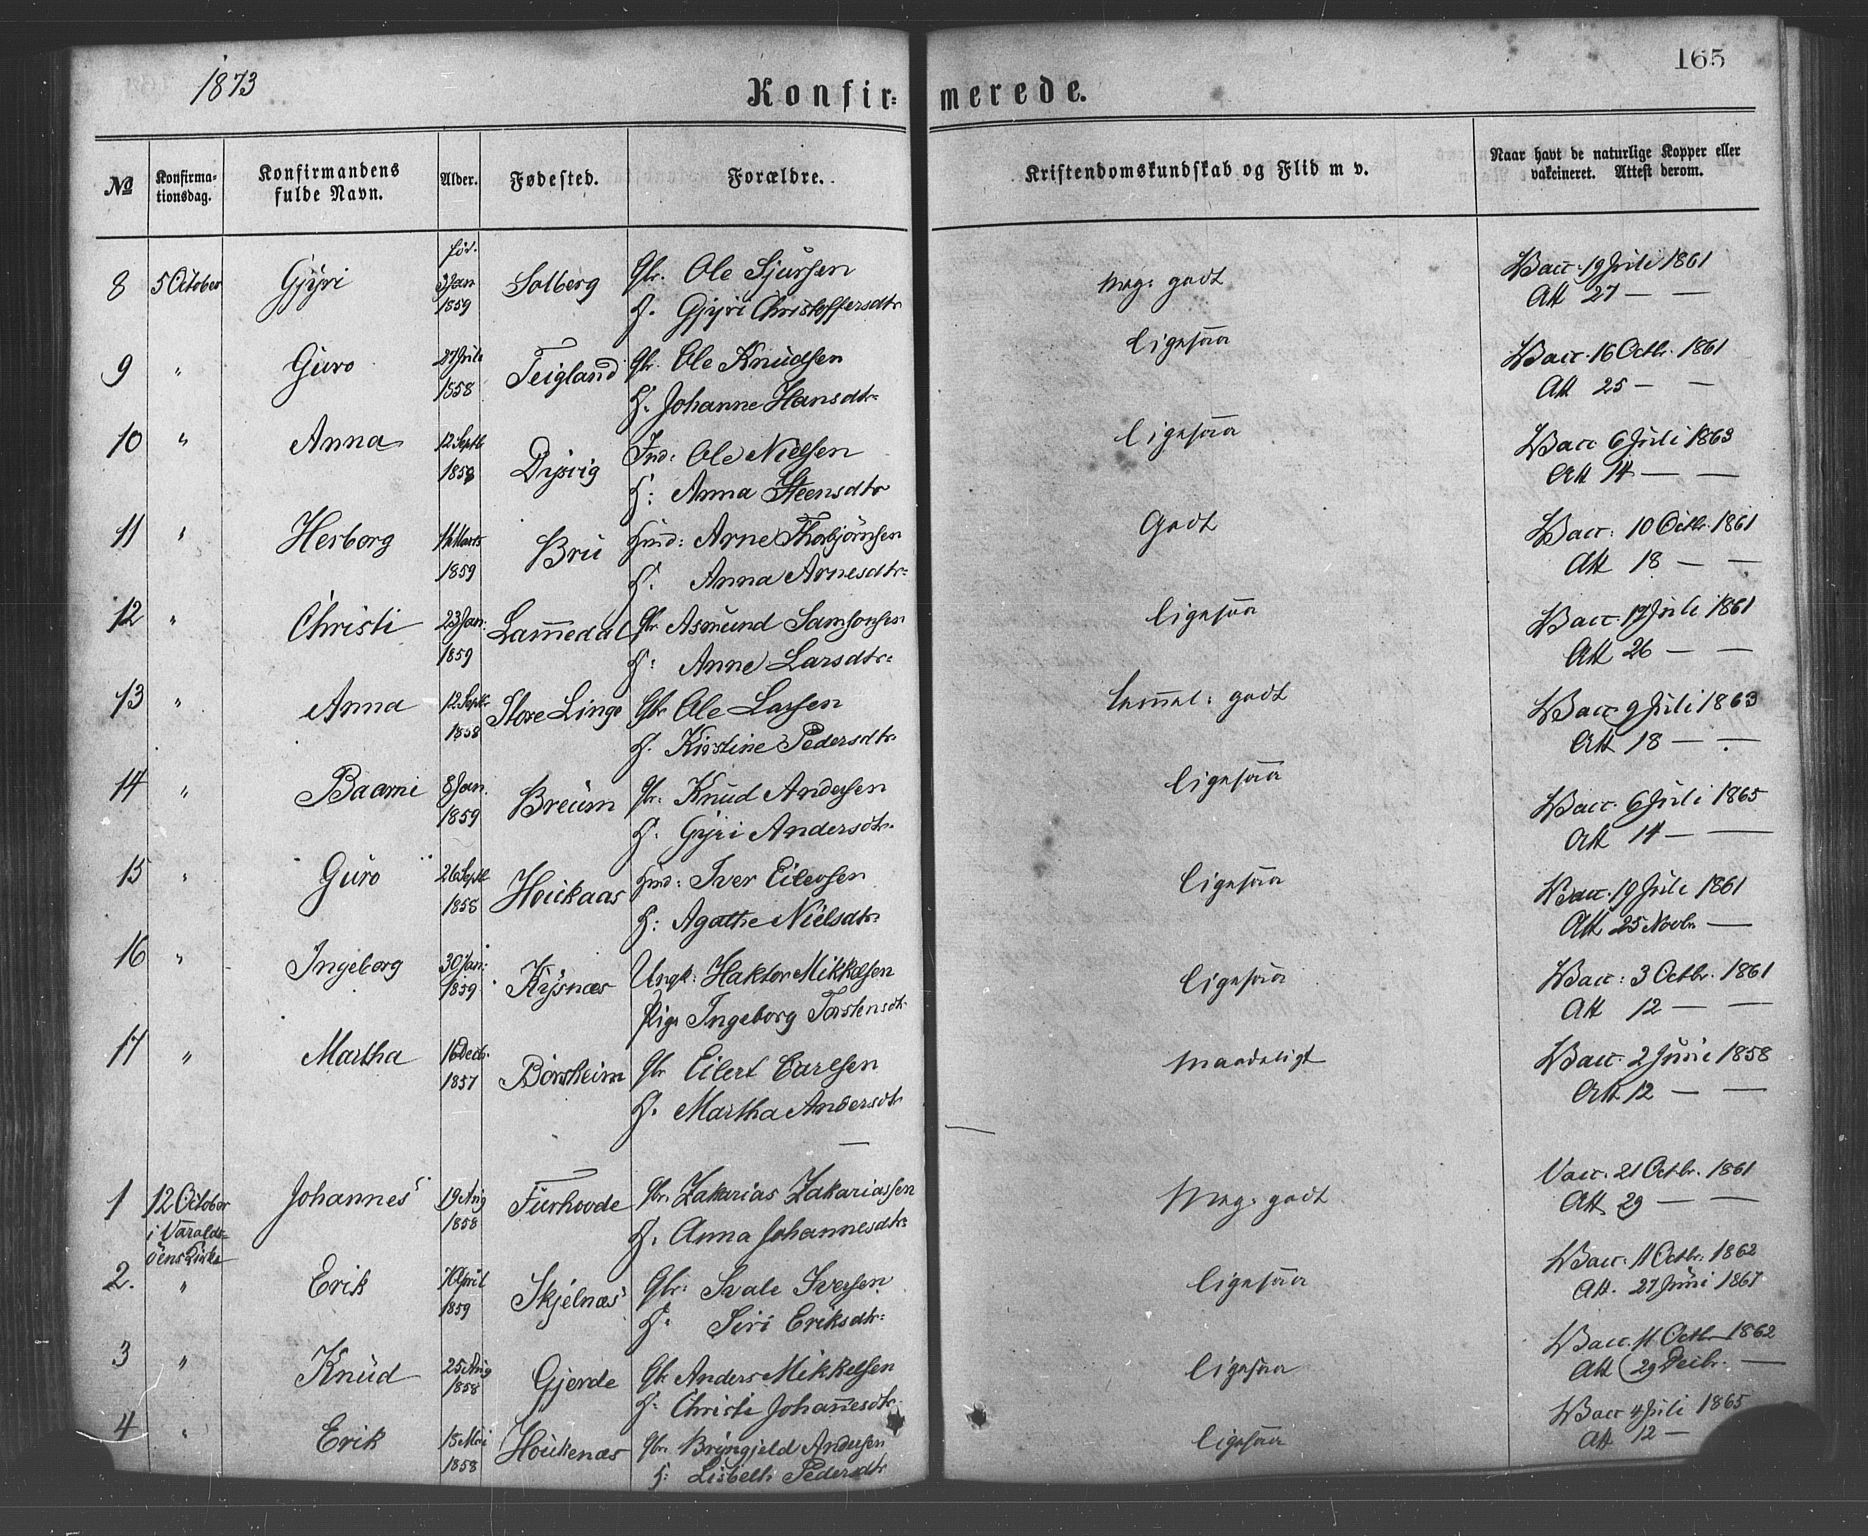 1873
Konfir= merede.
165
№ Konfirma-tionsdag. Konfirmandens fulde Navn. Alder. Fødested. Forældre. Kristendomskundskab og Flid m v. Naar havt de naturlige Kopper eller vakcineret. Attest derom.
8 5 October Gjyri fød. 3 Jan 1859 Solberg Gbr. Ole Sjursen meg: godt Vacc. 19 Juli 1861
H. Gjyri Christoffersdtr Att 27 — —
9 " Guro 27 Juli 1858 Teigland Gbr. Ole Knudsen ligesaa Vacc. 16 Octbr. 1861
H. Johanne Hansdtr Att 25 — —
10 " Anna 12 Septb 1858 Dysvig Ind: Ole Nielsen ligesaa Vacc 6 Juli 1863
H: Anna Steensdtr Att 14 — —
11 " Herborg Marts 1859 Bru Hmd: Arne Thorbjörnsen Godt Vacc: 10 Octbr. 1861
H. Anna Arnesdtr Att 18 — —
12 " Christi 23 Jan. 1859 Lammedal Gbr Asmund Samsonsen ligesaa Vacc. 17 Juli 1861
H: Anne Larsdtr Att 26 — —
13 " Anna 12 Septbr 1858 Store Linge Gbr Ole Larsen temmel: godt Vacc 9 Juli 1863
H. Kirstine Pedersdtr Att 18 — —
14 " Baarni 8 Jan. 1859 Breum Gbr: Knud Andersen ligesaa Vacc. 6 Juli 1865
H. Gyri Andersdtr. Att 14 — —
15 " Guro 26 Septb 1858 Houkaas Hmd: Iver Eilersen ligesaa Vacc. 19 Juli 1861
H: Agathe Nielsdtr Att 25 Novbr —
16 " Ingeborg 30 Jan: 1859 Krysnæs Ungk: Haktor Mikkelsen ligesaa Vacc: 3 Octbr. 1861
Pige Ingeborg Torstensdtr Att 12 — —
17 " Martha 16 Decb. 1857 Börsheim Gbr Eilert Carlsen maadeligt Vacc. 2 Juni 1858
H. Martha Andersdtr Att 12 — —
1 12 October i Varalds-öens Kirke Johannes 19 Aug 1858 Furhovde Gbr. Zakarias Zakariassen Meg: godt Vacc. 21 Octbr. 1861
H. Anna Johannesdtr Att 29 — —
2. " Erik April 1859 Skjelnæs Gbr: Svale Iversen ligesaa Vacc: 11 Octbr. 1862
H. Siri Eriksdtr Att. 27 Juni 1867
3 " Knud 25 Aug 1858 Gjerde Gbr Anders Mikkelsen ligesaa Vacc. 11 Octbr 1862
H. Christi Johannesdtr. Att 29 Decbr. —
4 " Erik 15 Mai 1858 Houkenæs Gbr. Bryngjeld Andersen ligesaa Vacc 4 Juli 1865
H: Lisbeth Pedersdtr Att 12 —